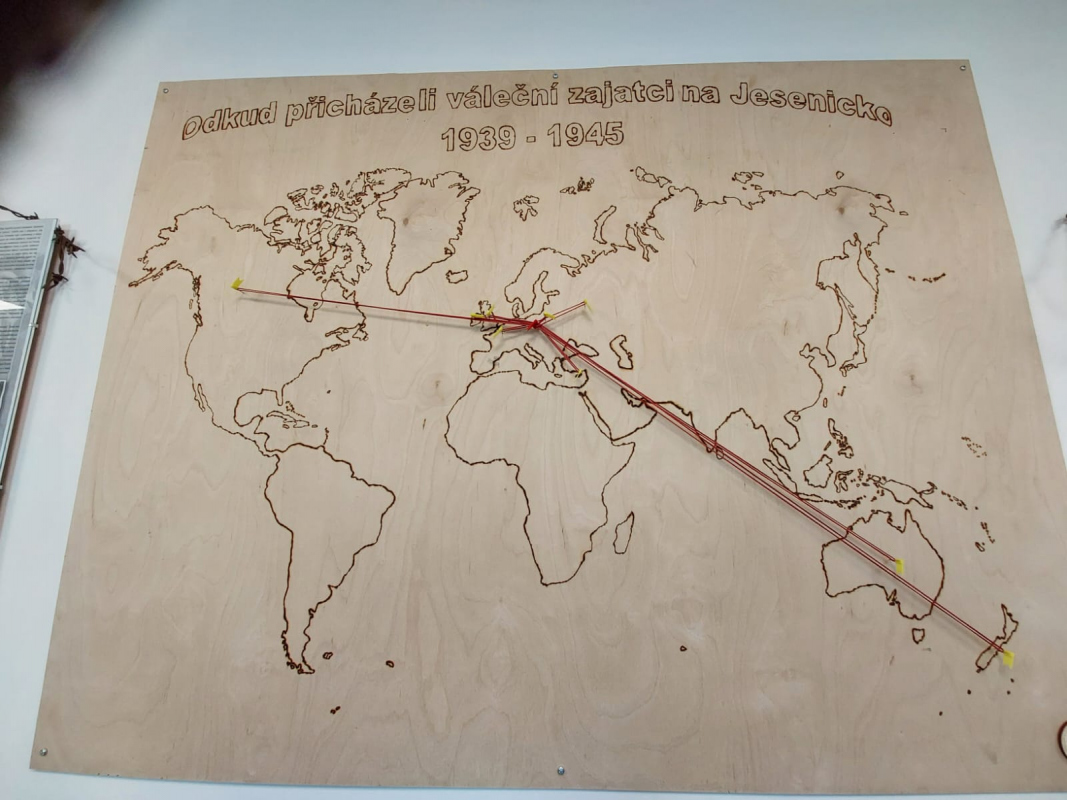 Odkud přicházeli váleční zajatci na Jesenicko
1939 - 1945